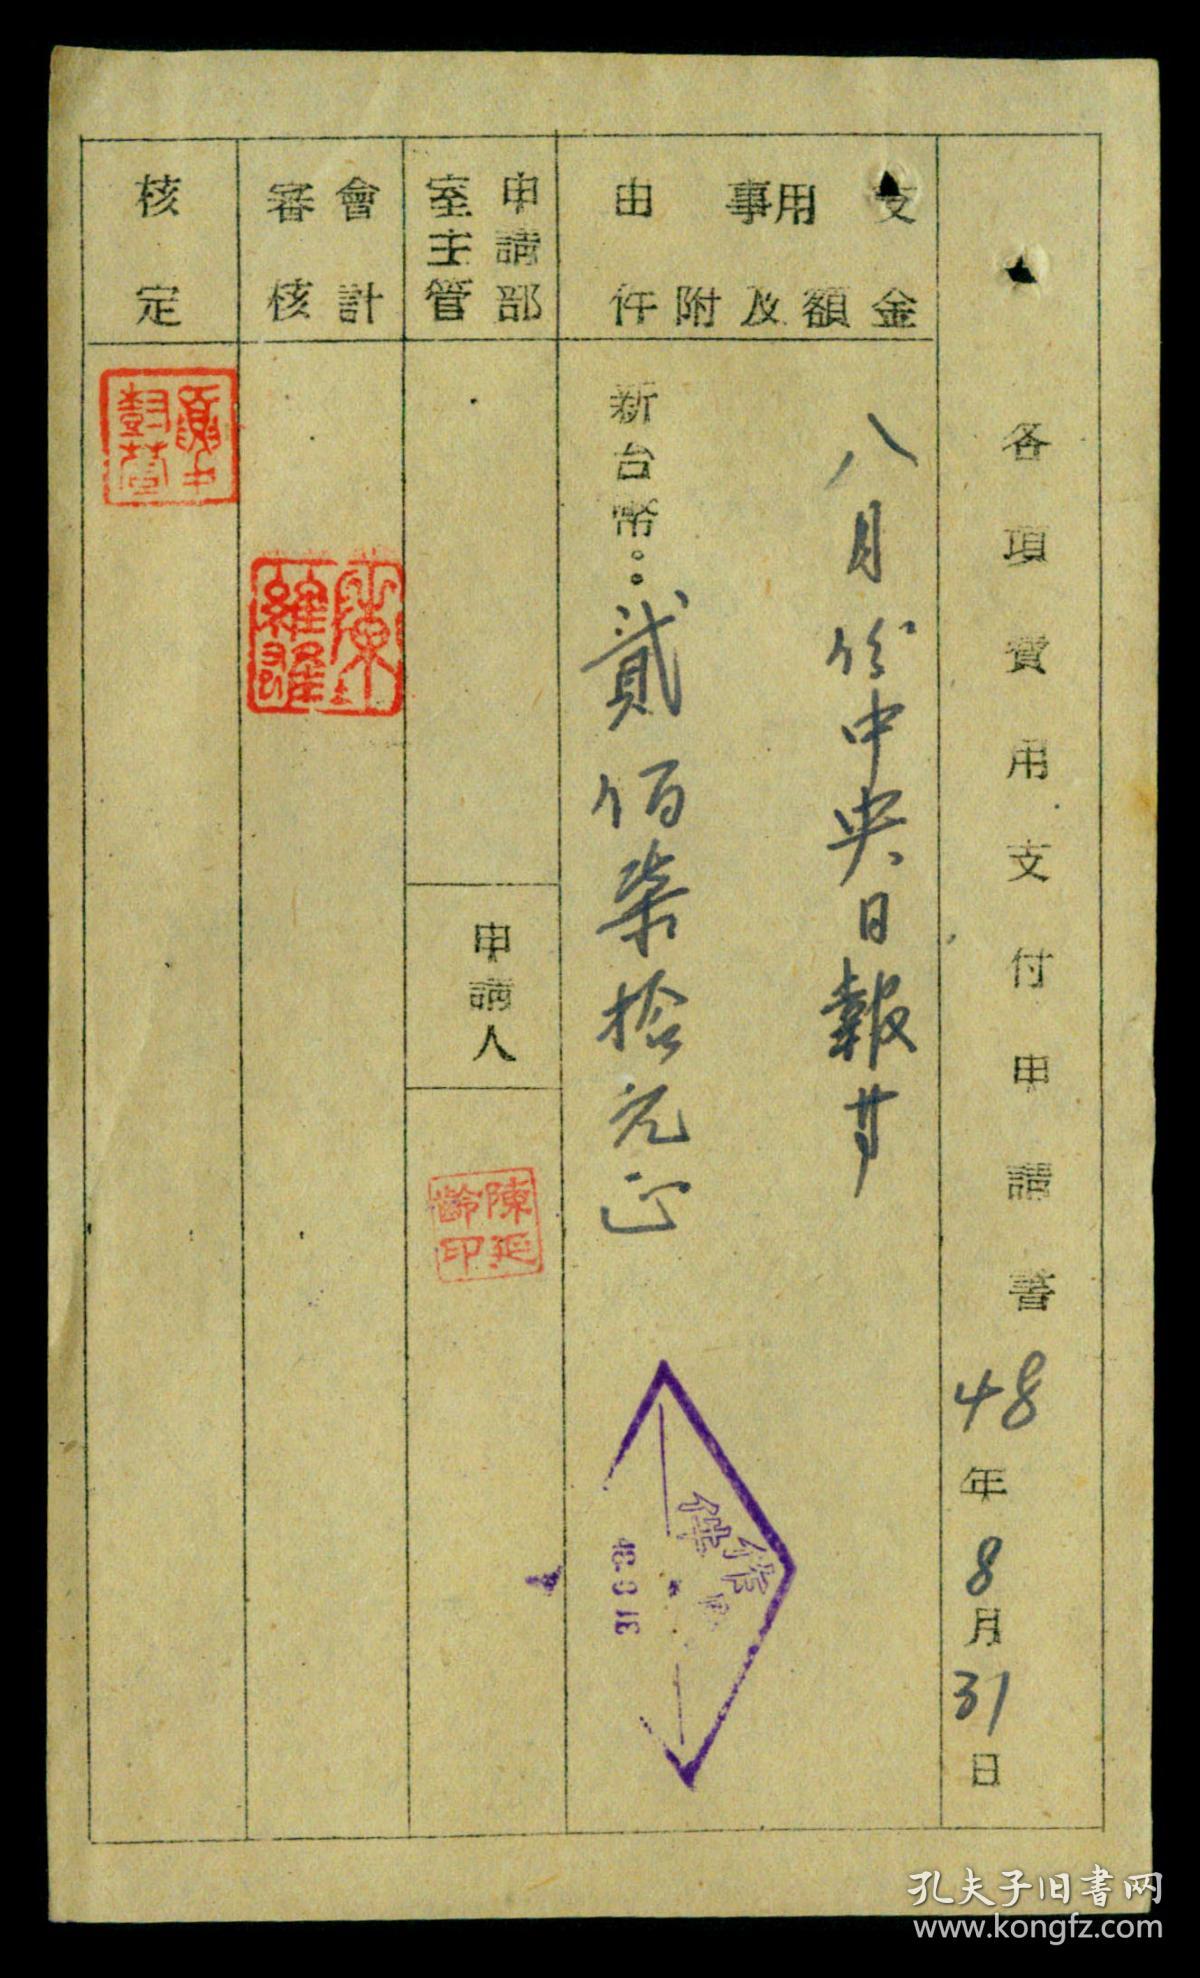 各項費用支付申請書
48年8月31日
支用事由
金額及附件
八月份中央日報廿
新台幣：貳佰柒拾元正
申請部
室主管
申請人
陳延
齡印
會計
審核
核定
48.8.31
孔夫子旧書网
www.kongfz.com